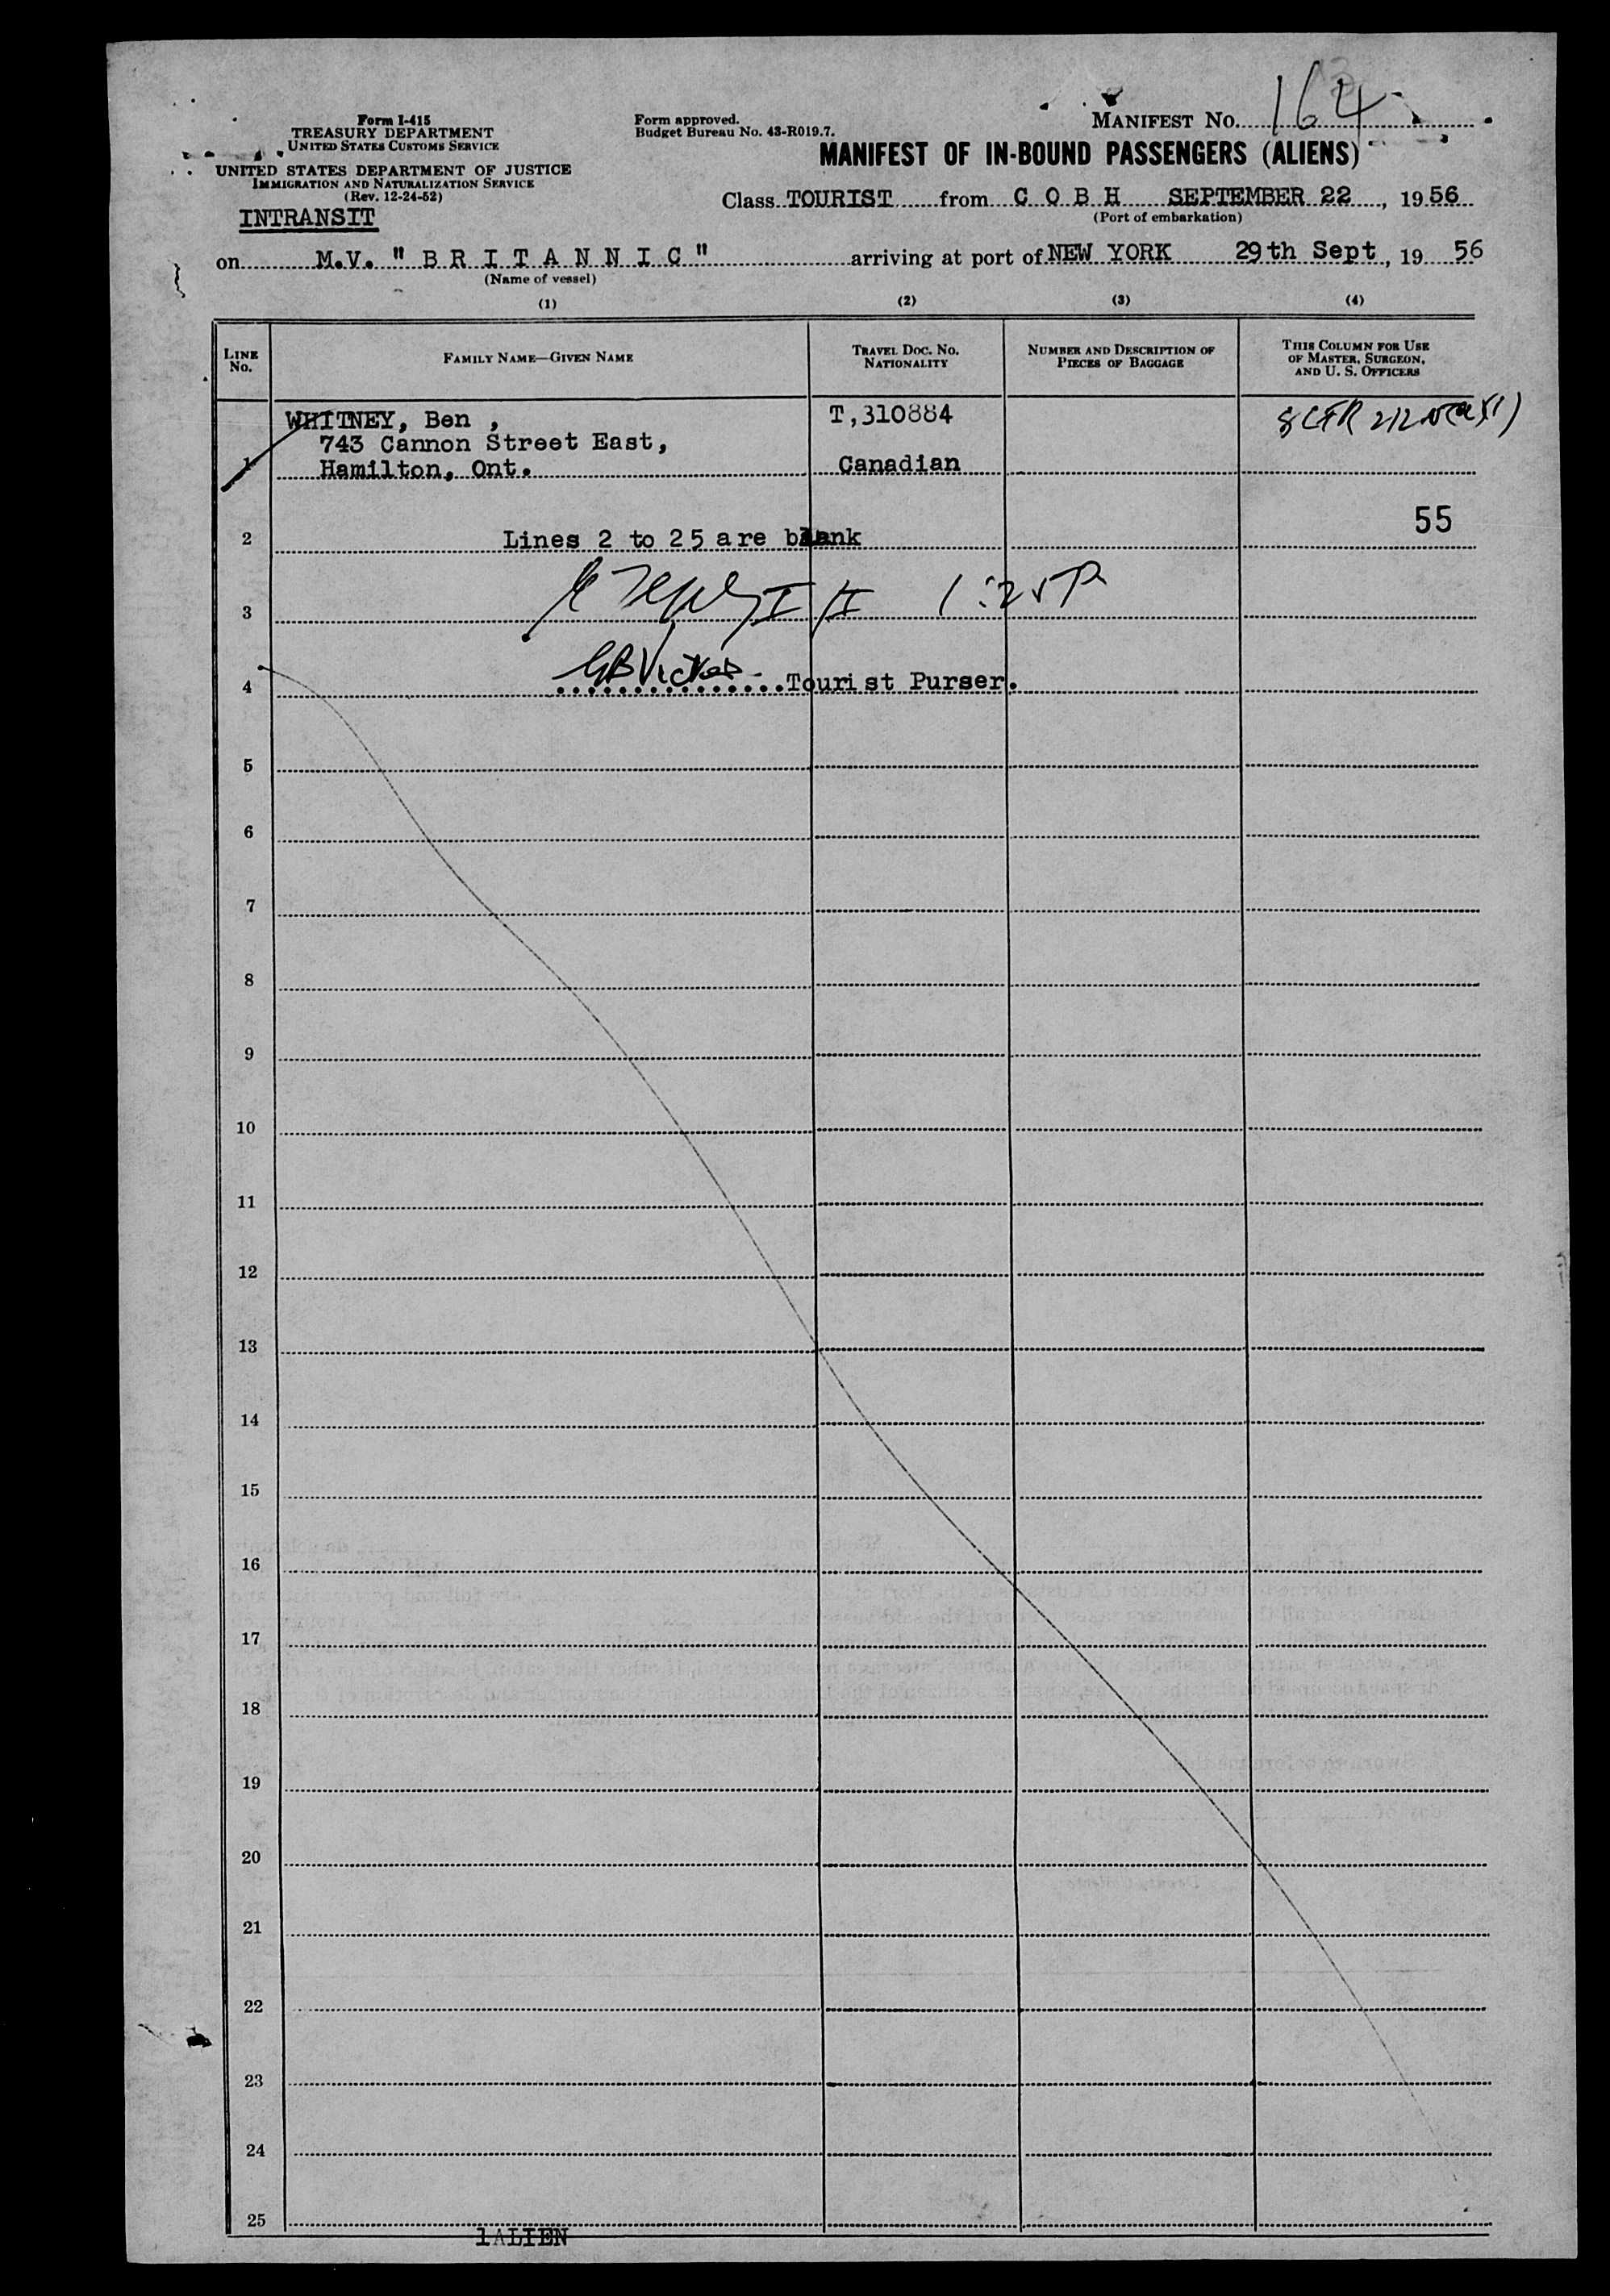 Form I-415
TREASURY DEPARTMENT
UNITED STATES CUSTOMS SERVICE
UNITED STATES DEPARTMENT OF JUSTICE
IMMIGRATION AND NATURALIZATION SERVICE
(Rev. 12-24-52)
INTRANSIT
Form approved.
Budget Bureau No. 43-R019.7.
MANIFEST NO. 164
MANIFEST OF IN-BOUND PASSENGERS (ALIENS)
Class TOURIST from C O B H SEPTEMBER 22, 1956
(Port of embarkation)
on M.V. "B R I T A N N I C" arriving at port of NEW YORK 29th Sept, 1956
(Name of vessel)
(1) (2) (3) (4)
LINE No. FAMILY NAME—GIVEN NAME TRAVEL DOC. NO. NATIONALITY NUMBER AND DESCRIPTION OF PIECES OF BAGGAGE THIS COLUMN FOR USE OF MASTER, SURGEON, AND U. S. OFFICERS
WHITNEY, Ben , T,310884 8 CFR
743 Cannon Street East,
1 Hamilton, Ont. Canadian
55
2 Lines 2 to 25 are blank
3 1:25P
4 Tourist Purser.
5
6
7
8
9
10
11
12
13
14
15
16
17
18
19
20
21
22
23
24
25
1 ALIEN